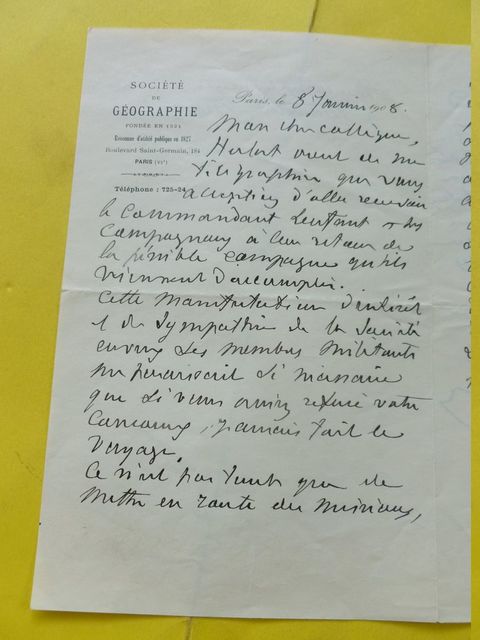 SOCIÉTÉ
DE
GÉOGRAPHIE
FONDÉE EN 1821
Reconnue d'utilité publique en 1827
Boulevard Saint-Germain, 184
PARIS (VIe)
Téléphone : 725-24
Paris, le 8 Janvier 1908.
Mon cher collègue,
vient de me
télégraphier que vous
acceptiez d'aller recevoir
le Commandant Lenfant & ses
Compagnons à leur retour de
la pénible campagne qu'ils
viennent d'accomplir.
Cette manifestation d'intérêt
& de sympathie de la Société
envers les membres militants
me paraissait si nécessaire
que si vous aviez refusé votre
concours, j'aurais fait le
voyage.
Ce n'est pas tout que de
mettre en route des missions,